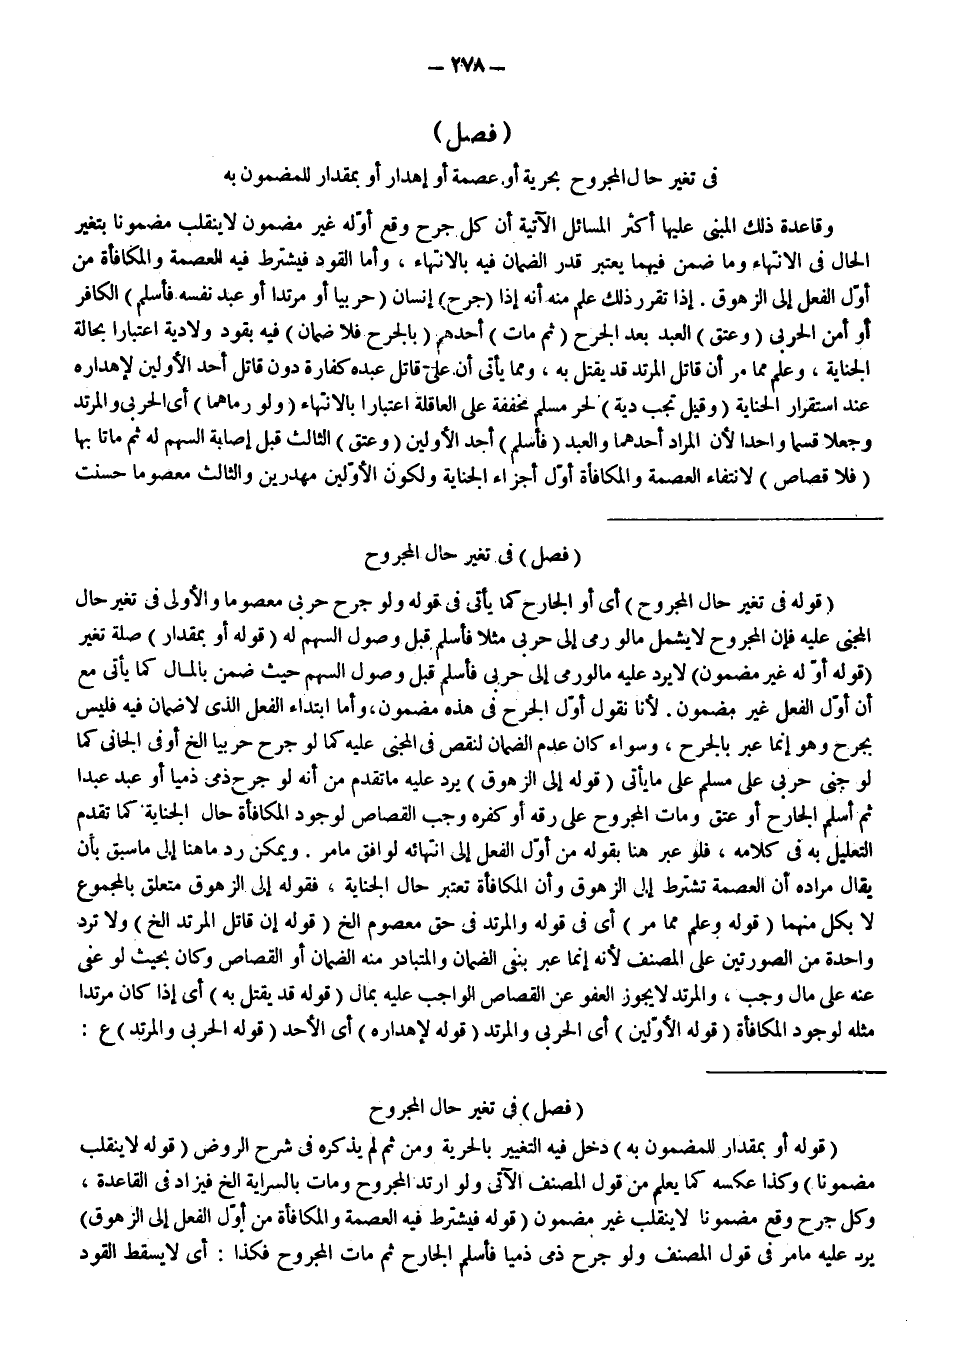 — ٢٧٨ —
( فصل )
فى تغير حال المجروح بحرية أو عصمة أو إهدار أو بمقدار للمضمون به
وقاعدة ذلك المبنى عليها أكثر المسائل الآتية أن كل جرح وقع أوّله غير مضمون لاينقلب مضمونا بتغير
الحال فى الانتهاء وما ضمن فيهما يعتبر قدر الضمان فيه بالانتهاء ، وأما القود فيشترط فيه للعصمة والمكافأة من
أوّل الفعل إلى الزهوق . إذا تقرر ذلك علم منه أنه إذا (جرح) إنسان ( حربيا أو مرتدا أو عبد نفسه فأسلم ) الكافر
أو أمن الحربى ( وعتق ) العبد بعد الجرح ( ثم مات ) أحدهم ( بالجرح فلا ضمان ) فيه بقود ولادية اعتبارا بحالة
الجناية ، وعلم مما مر أن قاتل المرتد قد يقتل به ، ومما يأتى أن على قاتل عبده كفارة دون قاتل أحد الأولين لإهداره
عند استقرار الجناية ( وقيل تجب دية ) لحر مسلم مخففة على العاقلة اعتبارا بالانتهاء ( ولو رماهما ) أى الحربى والمرتد
وجعلا قسما واحدا لأن المراد أحدهما والعبد ( فأسلم ) أحد الأولين ( وعتق ) الثالث قبل إصابة السهم له ثم ماتا بها
( فلا قصاص ) لانتفاء العصمة والمكافأة أوّل أجزاء الجناية ولكون الأوّلين مهدرين والثالث معصوما حسنت
( فصل ) فى تغير حال المجروح
( قوله فى تغير حال المجروح ) أى أو الجارح كما يأتى فى قوله ولو جرح حربى معصوما والأولى فى تغير حال
المجنى عليه فإن المجروح لايشمل مالو رمى إلى حربى مثلا فأسلم قبل وصول السهم له ( قوله أو بمقدار ) صلة تغير
(قوله أوّله غير مضمون) لايرد عليه مالورمى إلى حربى فأسلم قبل وصول السهم حيث ضمن بالمال كما يأتى مع
أن أوّل الفعل غير مضمون . لأنا نقول أوّل الجرح فى هذه مضمون، وأما ابتداء الفعل الذى لاضمان فيه فليس
بجرح وهو إنما عبر بالجرح ، وسواء كان عدم الضمان لنقص فى المجنى عليه كما لو جرح حربيا الخ أو فى الجانى كما
لو جنى حربى على مسلم على مايأتى ( قوله إلى الزهوق ) يرد عليه ماتقدم من أنه لو جرح ذمى ذميا أو عبد عبدا
ثم أسلم الجارح أو عتق ومات المجروح على رقه أو كفره وجب القصاص لوجود المكافأة حال الجناية كما تقدم
التعليل به فى كلامه ، فلو عبر هنا بقوله من أوّل الفعل إلى انتهائه لوافق مامر . ويمكن رد ماهنا إلى ماسبق بأن
يقال مراده أن العصمة تشترط إلى الزهوق وأن المكافأة تعتبر حال الجناية ، فقوله إلى الزهوق متعلق بالمجموع
لا بكل منهما ( قوله وعلم مما مر ) أى فى قوله والمرتد فى حق معصوم الخ ( قوله إن قاتل المرتد الخ ) ولا ترد
واحدة من الصورتين على المصنف لأنه إنما عبر بنفى الضمان والمتبادر منه الضمان أو القصاص وكان بحيث لو عفى
عنه على مال وجب ، والمرتد لايجوز العفو عن القصاص الواجب عليه بمال ( قوله قد يقتل به ) أى إذا كان مرتدا
مثله لوجود المكافأة ( قوله الأوّلين ) أى الحربى والمرتد ( قوله لإهداره ) أى الأحد ( قوله الحربى والمرتد ) ع :
( فصل ) فى تغير حال المجروح
( قوله أو بمقدار للمضمون به ) دخل فيه التغيير بالحرية ومن ثم لم يذكره فى شرح الروض ( قوله لاينقلب
مضمونا ) وكذا عكسه كما يعلم من قول المصنف الآتى ولو ارتد المجروح ومات بالسراية الخ فيزاد فى القاعدة ،
وكل جرح وقع مضمونا لاينقلب غير مضمون ( قوله فيشترط فيه العصمة والمكافأة من أوّل الفعل إلى الزهوق)
يرد عليه مامر فى قول المصنف ولو جرح ذمى ذميا فأسلم الجارح ثم مات المجروح فكذا : أى لايسقط القود